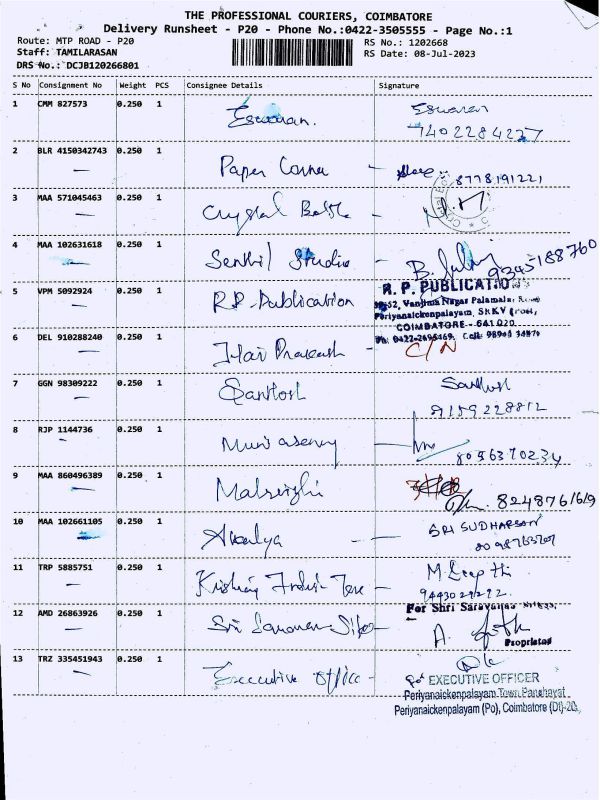 THE PROFESSIONAL COURIERS, COIMBATORE
Delivery Runsheet - P20 - Phone No.:0422-3505555 - Page No.:1
Route: MTP ROAD - P20
RS No.: 1202668
Staff: TAMILARASAN
RS Date: 08-Jul-2023
DRS No.: DCJB120266801
S No Consignment No Weight PCS Consignee Details Signature
1 CMM 827573 0.250 1 Eswaran. Eswaran
7402284227
2 BLR 4150342743 0.250 1 Paper Corner
8778191221
3 MAA 571045463 0.250 1 Crystal Bottle -
4 MAA 102631618 0.250 1 Senthil Studio - 9345188760
5 VPM 5092924 0.250 1 R.P. Publication R.P. PUBLICATIONS
Vanjima Nagar Palamalai Road
Periyanaickenpalayam, SRKV (Post,
COIMBATORE - 641 020
Ph: 0422-2695469, Cell:
6 DEL 910288240 0.250 1 Hari Prakash C/N
7 GGN 98309222 0.250 1 Santosh Santhosh
8159228812
8 RJP 1144736 0.250 1 Muniasamy
8056370234
9 MAA 860496389 0.250 1 8248761619
10 MAA 102661105 0.250 1 SRI SUDHARSAN
11 TRP 5885751 0.250 1 M. Deepthi
9443029292
12 AMD 26863926 0.250 1 Sri Saravana For Shri Saravanaa
A.
Proprietor
13 TRZ 335451943 0.250 1 Executive Office -
EXECUTIVE OFFICER
Periyanaickenpalayam Town Panchayat
Periyanaickenpalayam (Po), Coimbatore (Dt)-20.